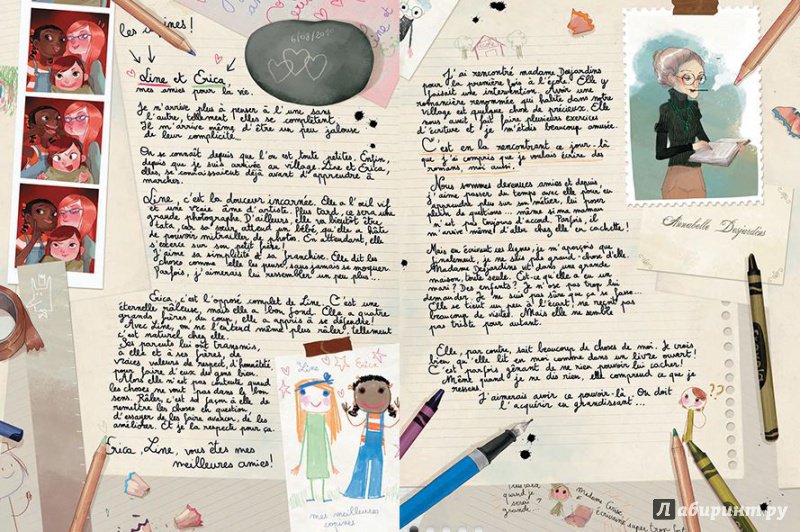 les copines !
6/08/2010
Line et Erica,
mes amies pour la vie.
Je n'arrive plus à penser à l'une sans
l'autre, tellement elles se complètent.
Il m'arrive même d'être un peu jalouse
de leur complicité.
On se connaît depuis que l'on est toute petites. Enfin,
depuis que je suis arrivée au village. Line et Erica,
elles, se connaissaient déjà avant d'apprendre à
marcher.
Line, c'est la douceur incarnée. Elle a l'œil vif
et une vraie âme d'artiste. Plus tard, ce sera une
grande photographe. D'ailleurs, elle va bientôt être
tata, car sa sœur attend un bébé, qu'elle a hâte
de pouvoir mitrailler de photo. En attendant, elle
s'exerce sur son petit frère !
J'aime sa simplicité et sa franchise. Elle dit les
choses comme elle les pense, sans jamais se moquer.
Parfois, j'aimerais lui ressembler un peu plus...
Erica c'est l'opposé complet de Line. C'est une
éternelle râleuse, mais elle a bon fond. Elle a quatre
grands frères du coup, elle a appris à se défendre !
Avec Line, on ne l'entend même plus râler, tellement
c'est naturel chez elle.
Ses parents lui ont transmis,
à elle et à ses frères, de
vraies valeurs de respect, d'honnêteté
pour faire d'eux des gens bien.
Alors elle n'est pas chieute quand
les choses ne vont pas dans le bon
sens. Râler, c'est sa façon à elle de
remettre les choses en question,
d'essayer de les faire avancer, de les
améliorer. Et je la respecte pour ça.
Erica, Line, vous êtes mes
meilleures amies !
Line
Erica
mes meilleures
copines
J'ai rencontré madame Desjardins
pour la première fois à l'école. Elle y
faisait une intervention. Avoir une
romancière renommée qui habite dans notre
village est quelque chose de précieux. Elle
nous avait fait faire plusieurs exercices
d'écriture et je m'étais beaucoup amusée.
C'est en la rencontrant ce jour-là
que j'ai compris que je voulais écrire des
romans, moi aussi.
Nous sommes devenues amies et depuis
j'aime passer du temps avec elle pour en
apprendre plus sur son métier, lui poser
pleins de questions... même si ma maman
n'est pas toujours d'accord. Parfois, il
m'arrive même d'aller chez elle en cachette !
Mais en écrivant ces lignes, je m'aperçois que
finalement, je ne sais pas grand-chose d'elle.
Madame Desjardins vit dans une grande
maison, toute seule. Est-ce qu'elle a eu un
mari ? Des enfants ? Je n'ose pas trop lui
demander. Je ne suis pas sûre que ça se fasse...
Elle se tient un peu à l'écart, ne reçoit pas
beaucoup de visites. Mais elle ne semble
pas triste pour autant.
Elle, par contre, sait beaucoup de choses de moi. Je crois
bien qu'elle lit en moi comme dans un livre ouvert !
C'est parfois gênant de ne rien pouvoir lui cacher !
Même quand je ne dis rien, elle comprend ce que je
ressens.
J'aimerais avoir ce pouvoir-là. On doit
l'acquérir en grandissant...
Annabelle Desjardins
??
quand je
serai
grande
madame Cerise,
Écrivaine super trop top !
Лабиринт.ру